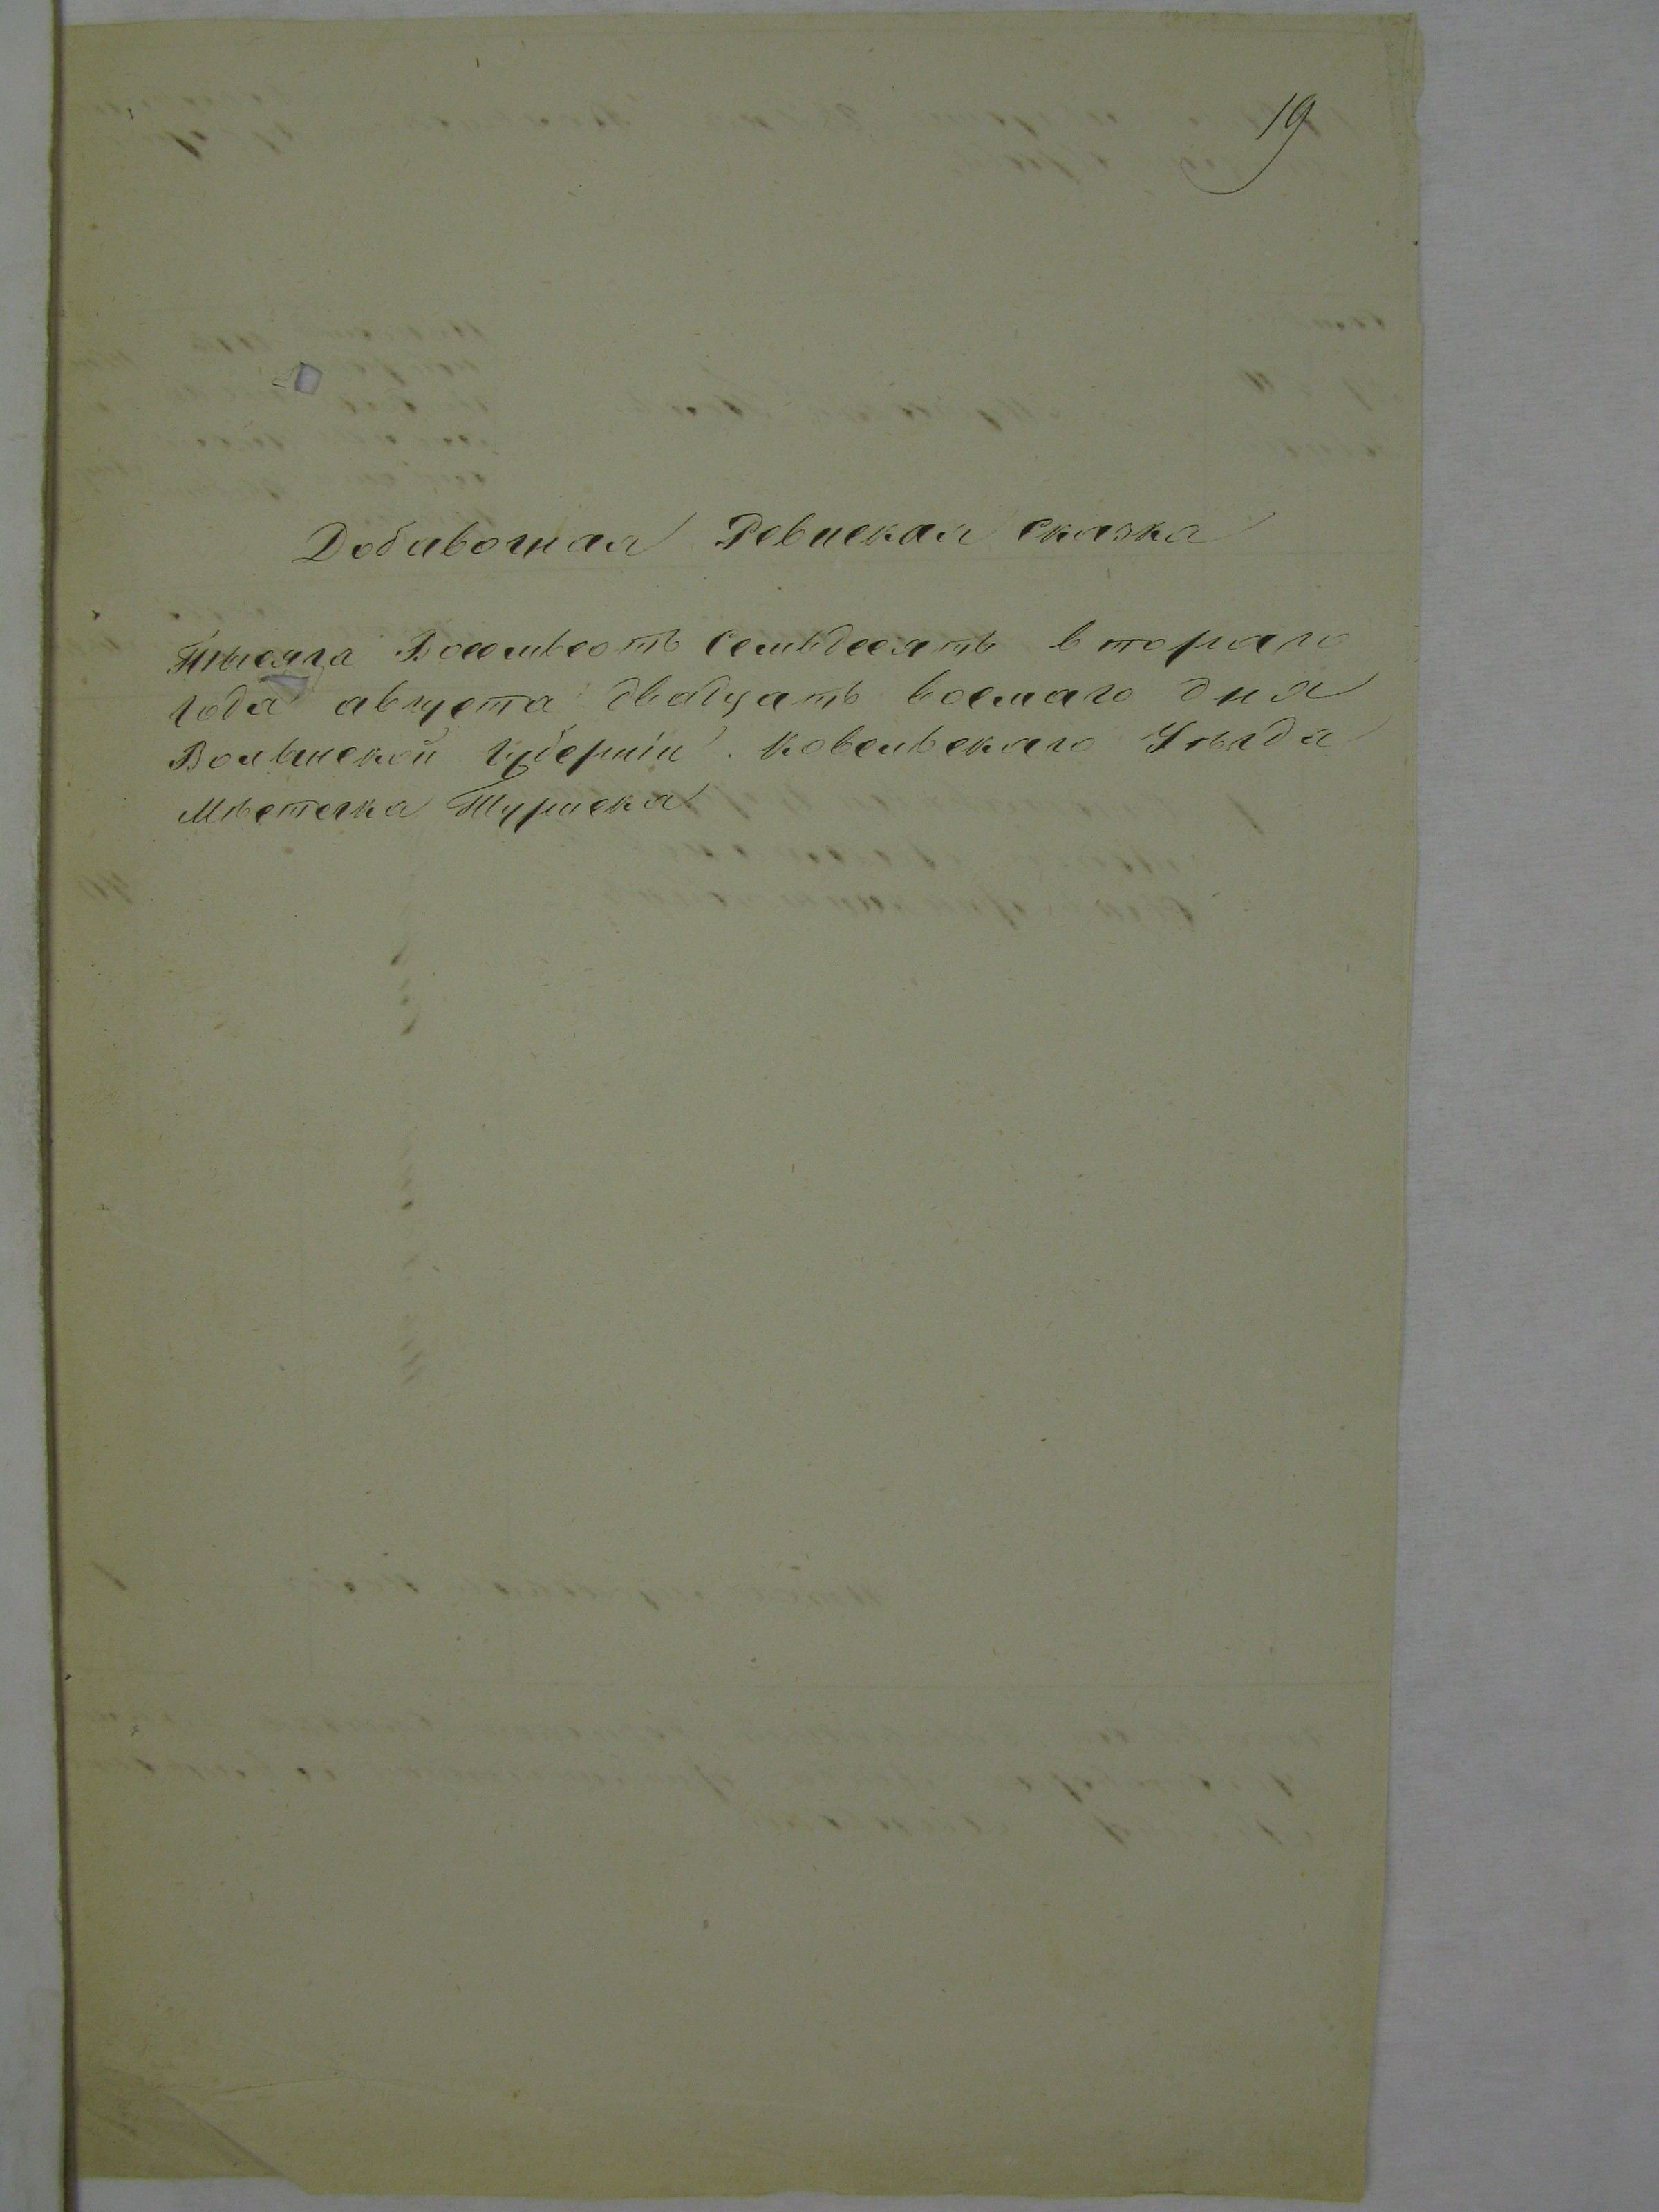 19
Добавочная Ревиская сказка
Тысяча Восемьсотъ семьдесятъ втораго
года августа двадцать восмаго дня
Волынской губерніи Ковельскаго Уѣзда
Мѣстечка Туриска